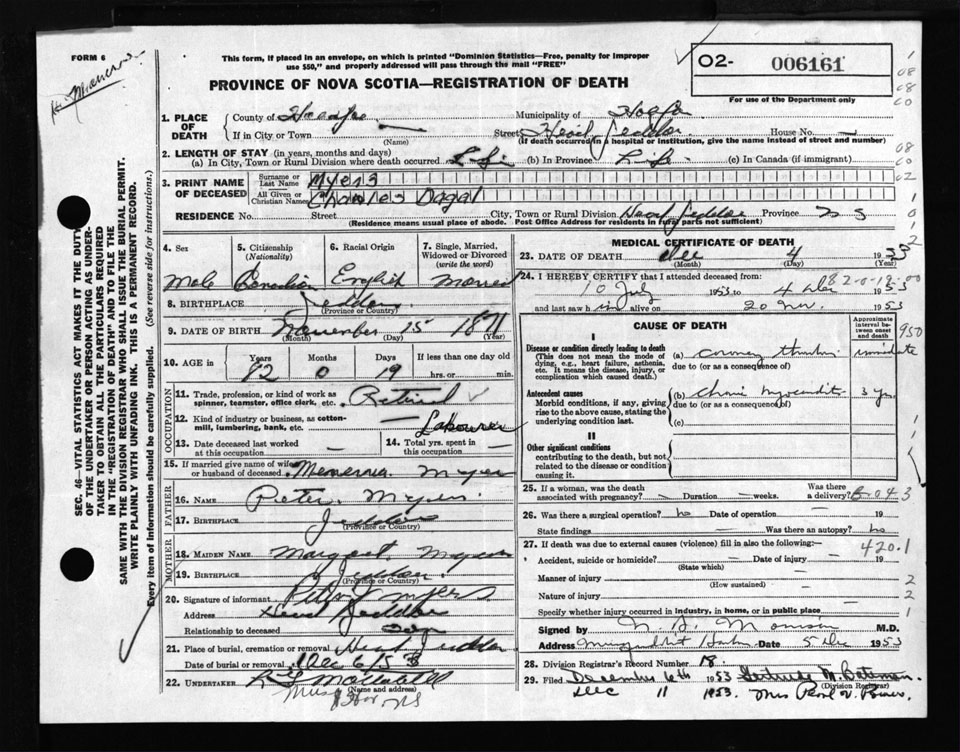 FORM 6
This form, if placed in an envelope, on which is printed "Dominion Statistics—Free, penalty for improper
use $50," and properly addressed will pass through the mail "FREE"
PROVINCE OF NOVA SCOTIA—REGISTRATION OF DEATH
O2- 006161
For use of the Department only
1. PLACE OF DEATH
County of Halifax Municipality of Halifax
If in City or Town — (Name) Street Head Jeddore House No. —
(If death occurred in a hospital or institution, give the name instead of street and number)
2. LENGTH OF STAY (in years, months and days)
(a) In City, Town or Rural Division where death occurred Life (b) In Province Life (c) In Canada (if immigrant)
3. PRINT NAME OF DECEASED
Surname or Last Name Myers
All Given or Christian Names Charles Dagal
RESIDENCE No. Street City, Town or Rural Division Head Jeddore Province N S
(Residence means usual place of abode. Post Office Address for Residents in rural parts not sufficient)
4. Sex 5. Citizenship (Nationality) 6. Racial Origin 7. Single, Married, Widowed or Divorced (write the word)
Male Canadian English Married
8. BIRTHPLACE Jeddore
(Province or Country)
9. DATE OF BIRTH November 15 1871
(Month) (Day) (Year)
10. AGE in Years Months Days If less than one day old
82 0 19 hrs. or min.
OCCUPATION
11. Trade, profession, or kind of work as spinner, teamster, office clerk, etc. Retired
12. Kind of industry or business, as cotton-mill, lumbering, bank, etc. Labourer
13. Date deceased last worked at this occupation —
14. Total yrs. spent in this occupation —
15. If married give name of wife or husband of deceased Myers
FATHER
16. NAME Peter Myers
17. BIRTHPLACE Jeddore
(Province or Country)
MOTHER
18. MAIDEN NAME Margaret Myers
19. BIRTHPLACE Jeddore
(Province or Country)
20. Signature of informant Myers
Address Head Jeddore
Relationship to deceased son
21. Place of burial, cremation or removal Head Jeddore
Date of burial or removal Dec 6/53
22. UNDERTAKER
(Name and address)
MEDICAL CERTIFICATE OF DEATH
23. DATE OF DEATH Dec 4 1953
(Month) (Day) (Year)
24. I HEREBY CERTIFY that I attended deceased from:
10 July 1953 to 4 Dec 1953
and last saw him alive on 20 Nov. 1953
CAUSE OF DEATH
Approximate interval between onset and death
I
Disease or condition directly leading to death
(This does not mean the mode of dying, e.g., heart failure, asthenia, etc. It means the disease, injury, or complication which caused death.)
(a) coronary thrombosis immediate
due to (or as a consequence of)
Antecedent causes
Morbid conditions, if any, giving rise to the above cause, stating the underlying condition last.
(b) chronic myocarditis 3 yrs
due to (or as a consequence of)
(c)
II
Other significant conditions
contributing to the death, but not related to the disease or condition causing it.
25. If a woman, was the death associated with pregnancy? — Duration — weeks. Was there a delivery?
26. Was there a surgical operation? no Date of operation — 19
State findings — Was there an autopsy? no
27. If death was due to external causes (violence) fill in also the following:— 420.1
Accident, suicide or homicide? — Date of injury — 19
(State which)
Manner of injury
(How sustained)
Nature of injury
Specify whether injury occurred in industry, in home, or in public place
Signed by M.D.
Address Musquodoboit Harbour Date 5 Dec 1953
28. Division Registrar's Record Number 18.
29. Filed December 6th 1953 Gertrude M. Bateman
(Division Registrar)
Dec 11 1953. Mrs Pearl V.
SEC. 46—VITAL STATISTICS ACT MAKES IT THE DUTY
OF THE UNDERTAKER OR PERSON ACTING AS UNDER-
TAKER TO OBTAIN ALL THE PARTICULARS REQUIRED
IN THE "REGISTRATION OF DEATH" AND TO FILE THE
SAME WITH THE DIVISION REGISTRAR WHO SHALL ISSUE THE BURIAL PERMIT.
WRITE PLAINLY WITH UNFADING INK. THIS IS A PERMANENT RECORD.
Every item of information should be carefully supplied. (See reverse side for instructions.)